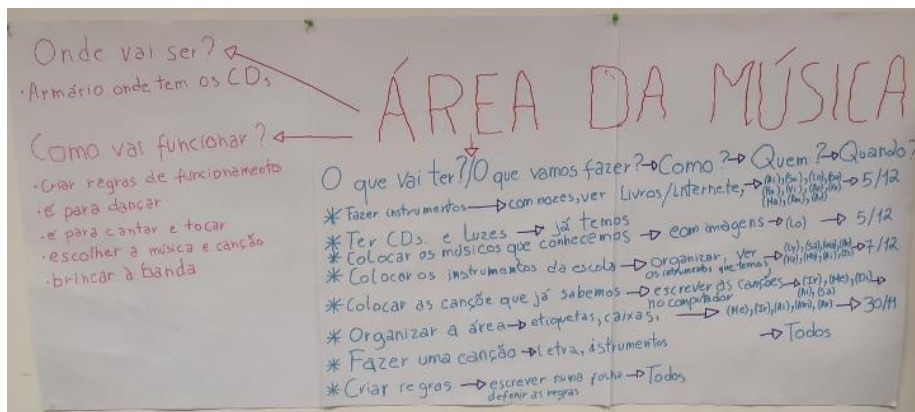 Onde vai ser?
· Armário onde tem os CDs
Como vai funcionar?
· Criar regras de funcionamento
· é para dançar
· é para cantar e tocar
· escolher a música e canção
· brincar à banda
ÁREA DA MÚSICA
O que vai ter?/O que vamos fazer?→Como?→Quem?→Quando?
* Fazer instrumentos→com nozes, ver Livros/Internete,→5/12
* Ter CDs e luzes→já temos
* Colocar os músicos que conhecemos→com imagens→(Lo)→5/12
* Colocar os instrumentos da escola→organizar, ver os instrumentos que temos,→7/12
* Colocar as canções que já sabemos→escrever as canções no computador→(Ir),(Me),(Di)→
* Organizar a área→etiquetas, caixas,→(Me),(Ir),(Ai),(Am),(Ar)→30/11
* Fazer uma canção→Letra, istrumentos→Todos
* Criar regras→escrever numa folha→Todos
defenir as regras